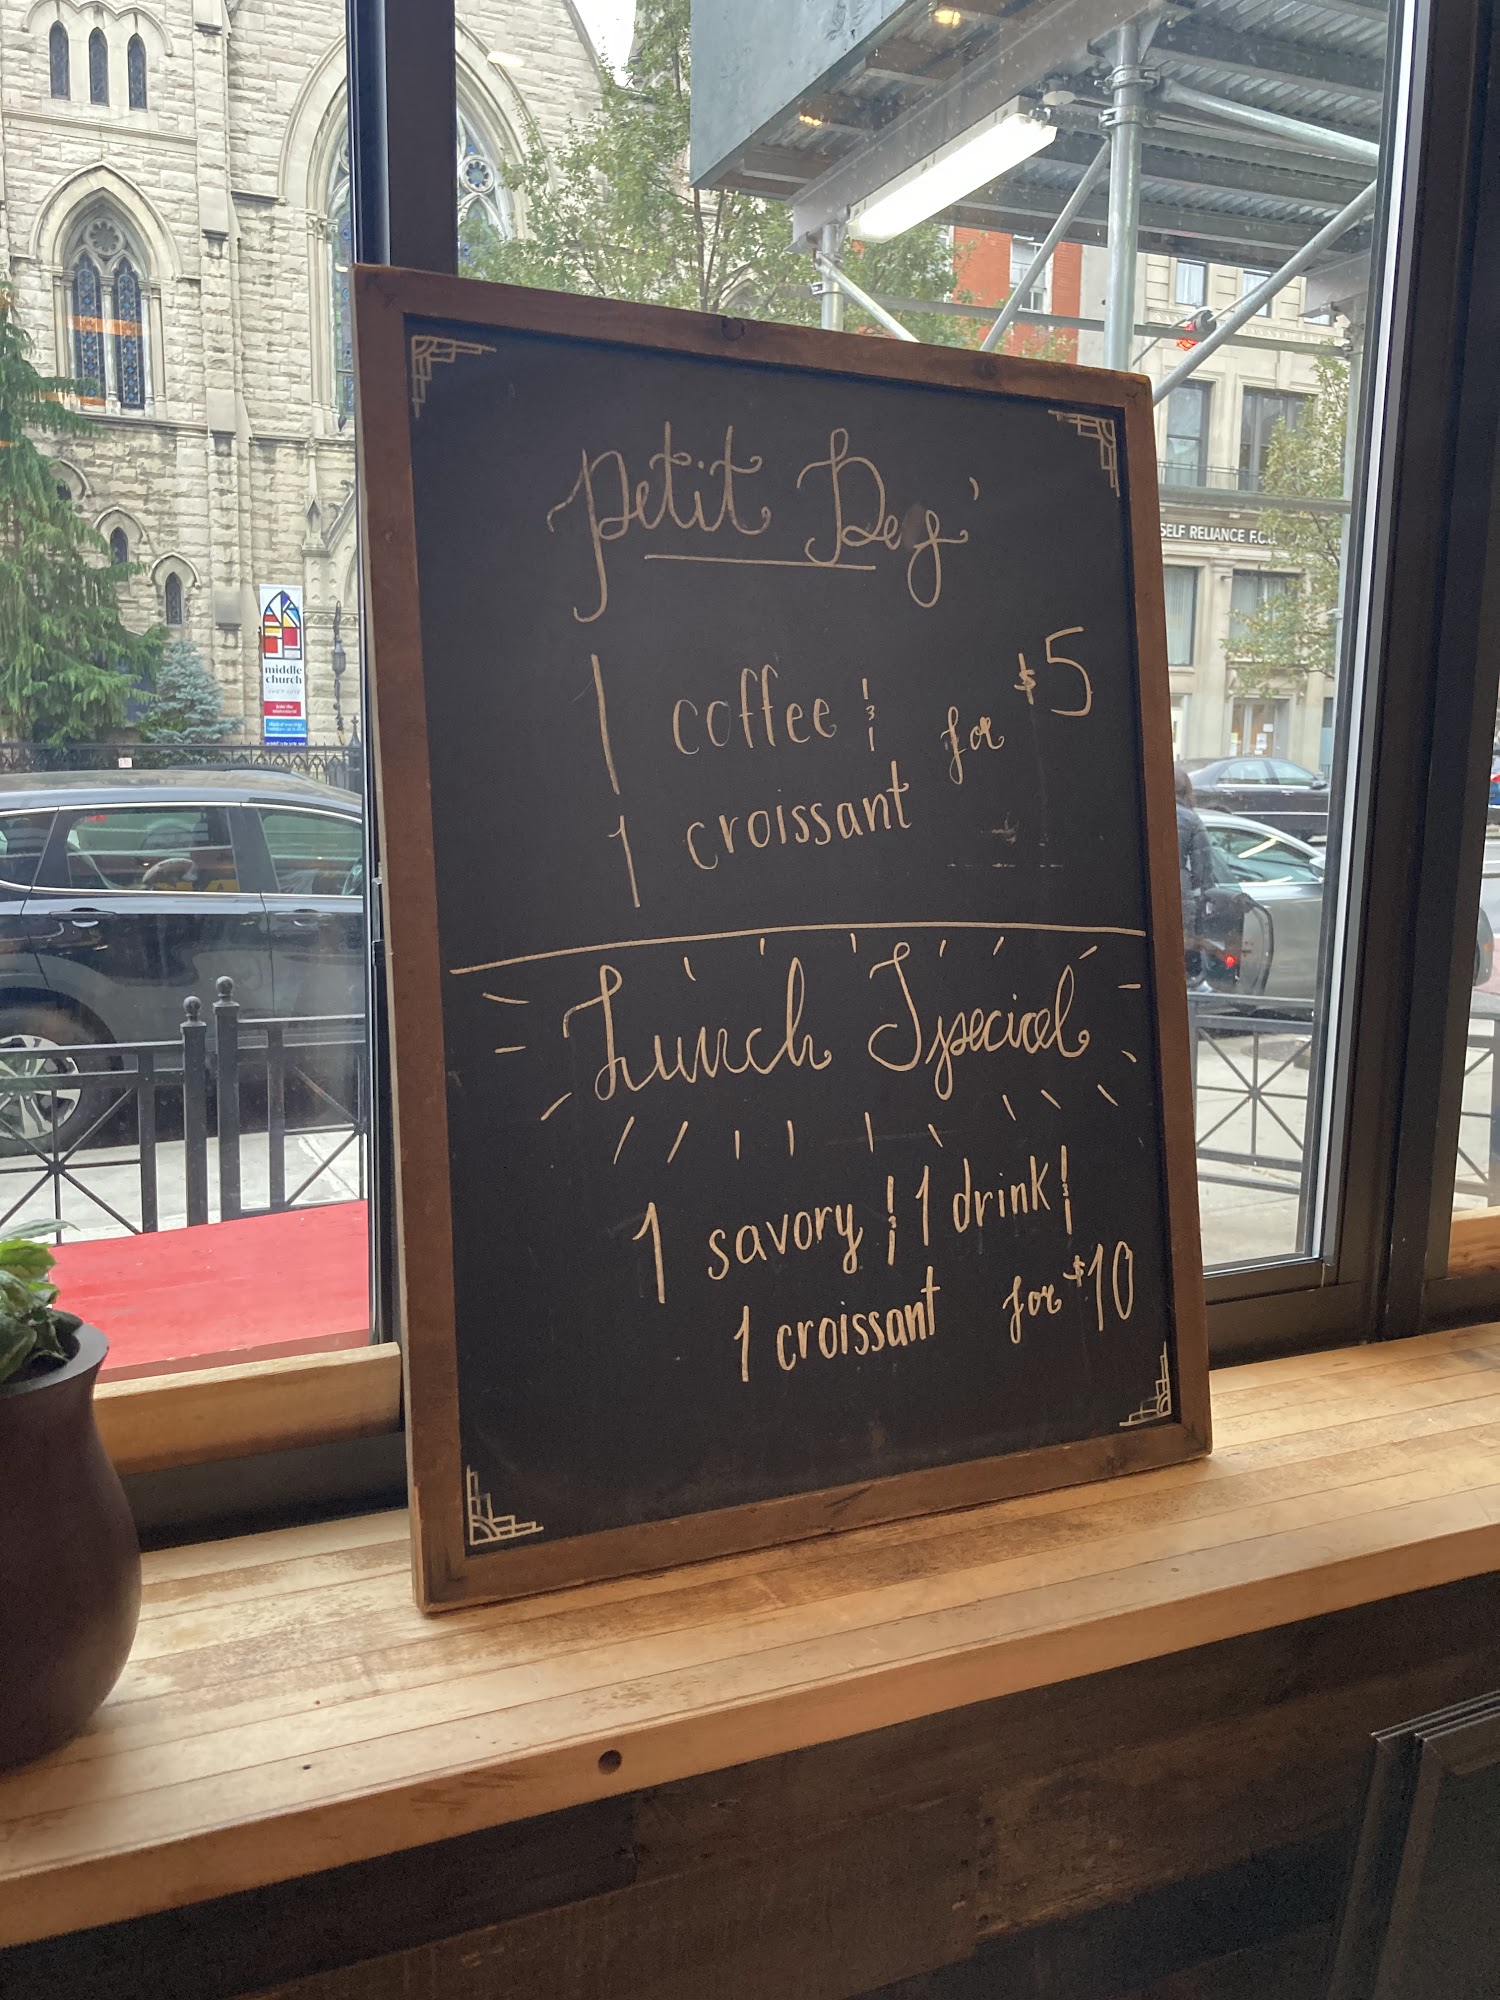 Petit Dej'
1 coffee &
1 croissant for $5
Lunch Special
1 savory & 1 drink &
1 croissant for $10
middle
church
SELF RELIANCE F.C.U.